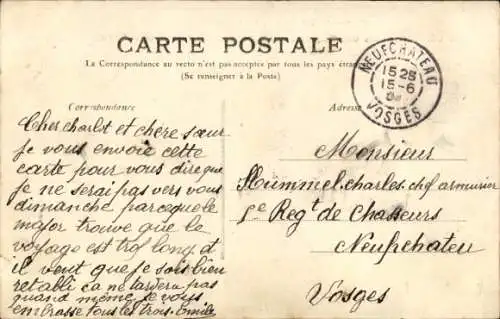 CARTE POSTALE
La Correspondance au recto n'est pas acceptée par tous les pays étran
(Se renseigner à la Poste)
NEUFCHATEAU
15 25
15-6
VOSGES
Correspondance
Adresse
Cher charlot et chère sœur
je vous envoie cette
carte pour vous dire que
je ne serai pas vers vous
dimanche parceque le
major trouve que le
voyage est trop long et
il veut que je sois bien
retabli ca ne tardera pas
quand même je vous
embrasse tous les trois. Emile
Monsieur
Hummel charles chef armurier
Regt de Chasseurs
Neufchateu
Vosges